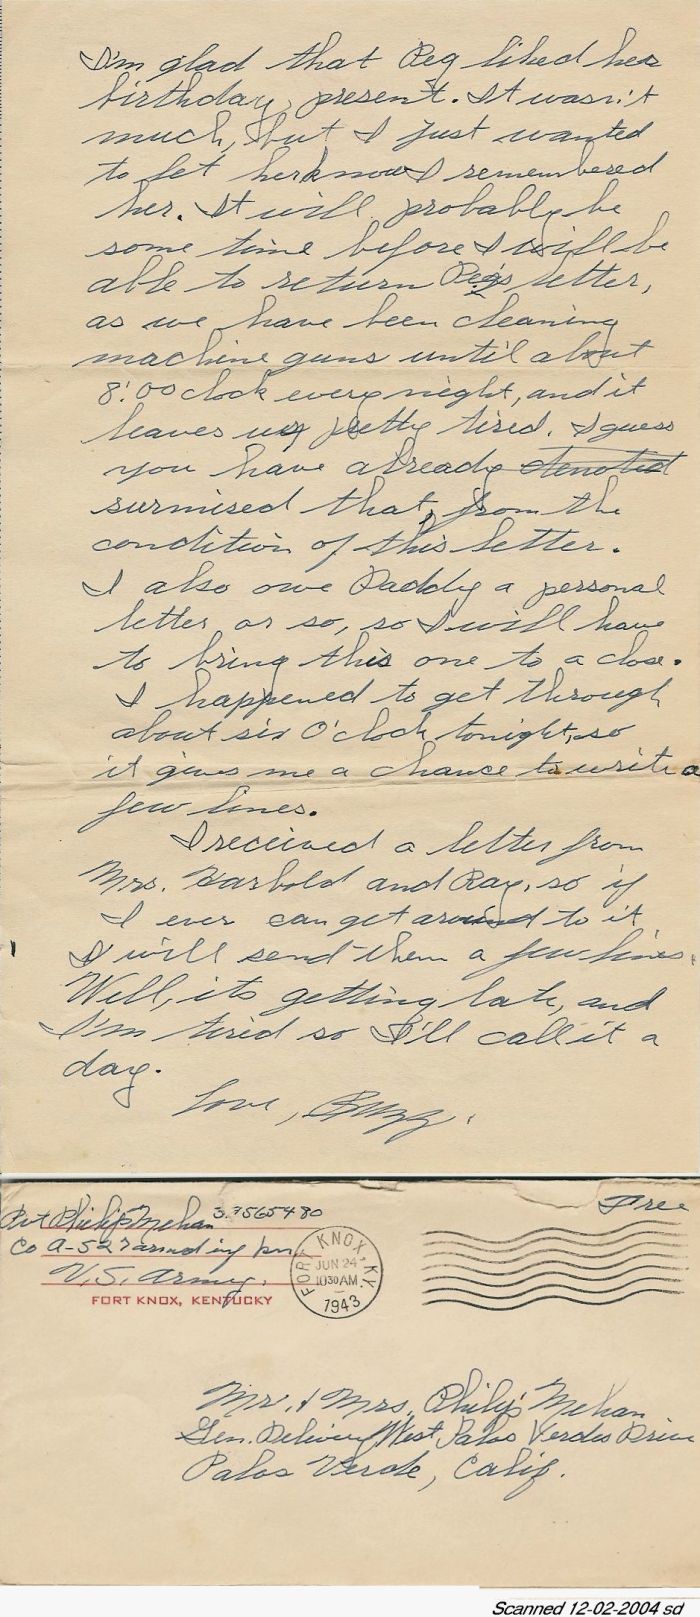 I'm glad that Peg liked her
birthday present. It wasn't
much, but I just wanted
to let her know I remembered
her. It will probably be
some time before I will be
able to return Peg's letter,
as we have been cleaning
machine guns until about
8:00 clock every night, and it
leaves us pretty tired. I guess
you have already
surmised that, from the
condition of this letter.
I also owe Daddy a personal
letter or so, so I will have
to bring this one to a close.
I happened to get through
about six O'clock tonight, so
it gives me a chance to write a
few lines.
I received a letter from
Mrs. Harbold and Ray, so if
I ever can get around to it
I will send them a few lines.
Well, its getting late, and
I'm tired so I'll call it a
day.
Love, Buzz.
Free
Pvt Philip Mehan 37565480
Co A-527
U.S. Army.
FORT KNOX, KENTUCKY
FORT KNOX, KY.
JUN 24
1030 AM
1943
Mr. & Mrs. Philip Mehan
Gen. Delivery West Palos Verdes Drive
Palos Verde, Calif.
Scanned 12-02-2004 sd